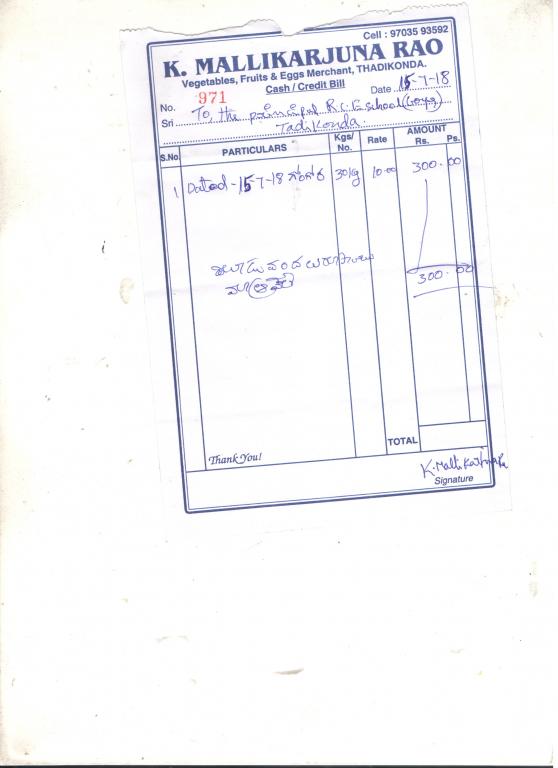 Cell : 97035 93592
K. MALLIKARJUNA RAO
Vegetables, Fruits & Eggs Merchant, THADIKONDA.
Cash / Credit Bill
No. 971 Date 15-7-18
Sri To, the principal R.C.E school (Boys)
Tadikonda.
S.No. PARTICULARS Kgs/ No. Rate AMOUNT Rs. Ps.
1 Dated - 15-7-18 గోంగూర 30kg 10.00 300.00
300.00
TOTAL
Thank You!
K. Mallikarjuna
Signature